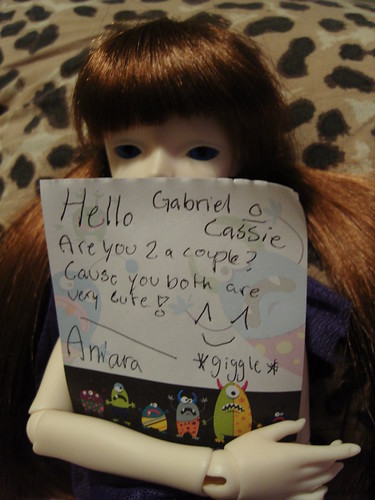 Hello Gabriel &
Cassie
Are you 2 a couple?
Cause you both are
very cute!
Amara
*giggle*